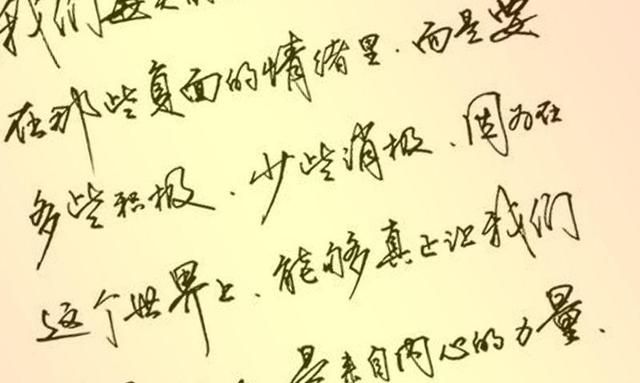 我们每天的
在那些负面的情绪里.而是要
多些积极、少些消极、因为在
这个世界上、能够真正让我们
是来自内心的力量、